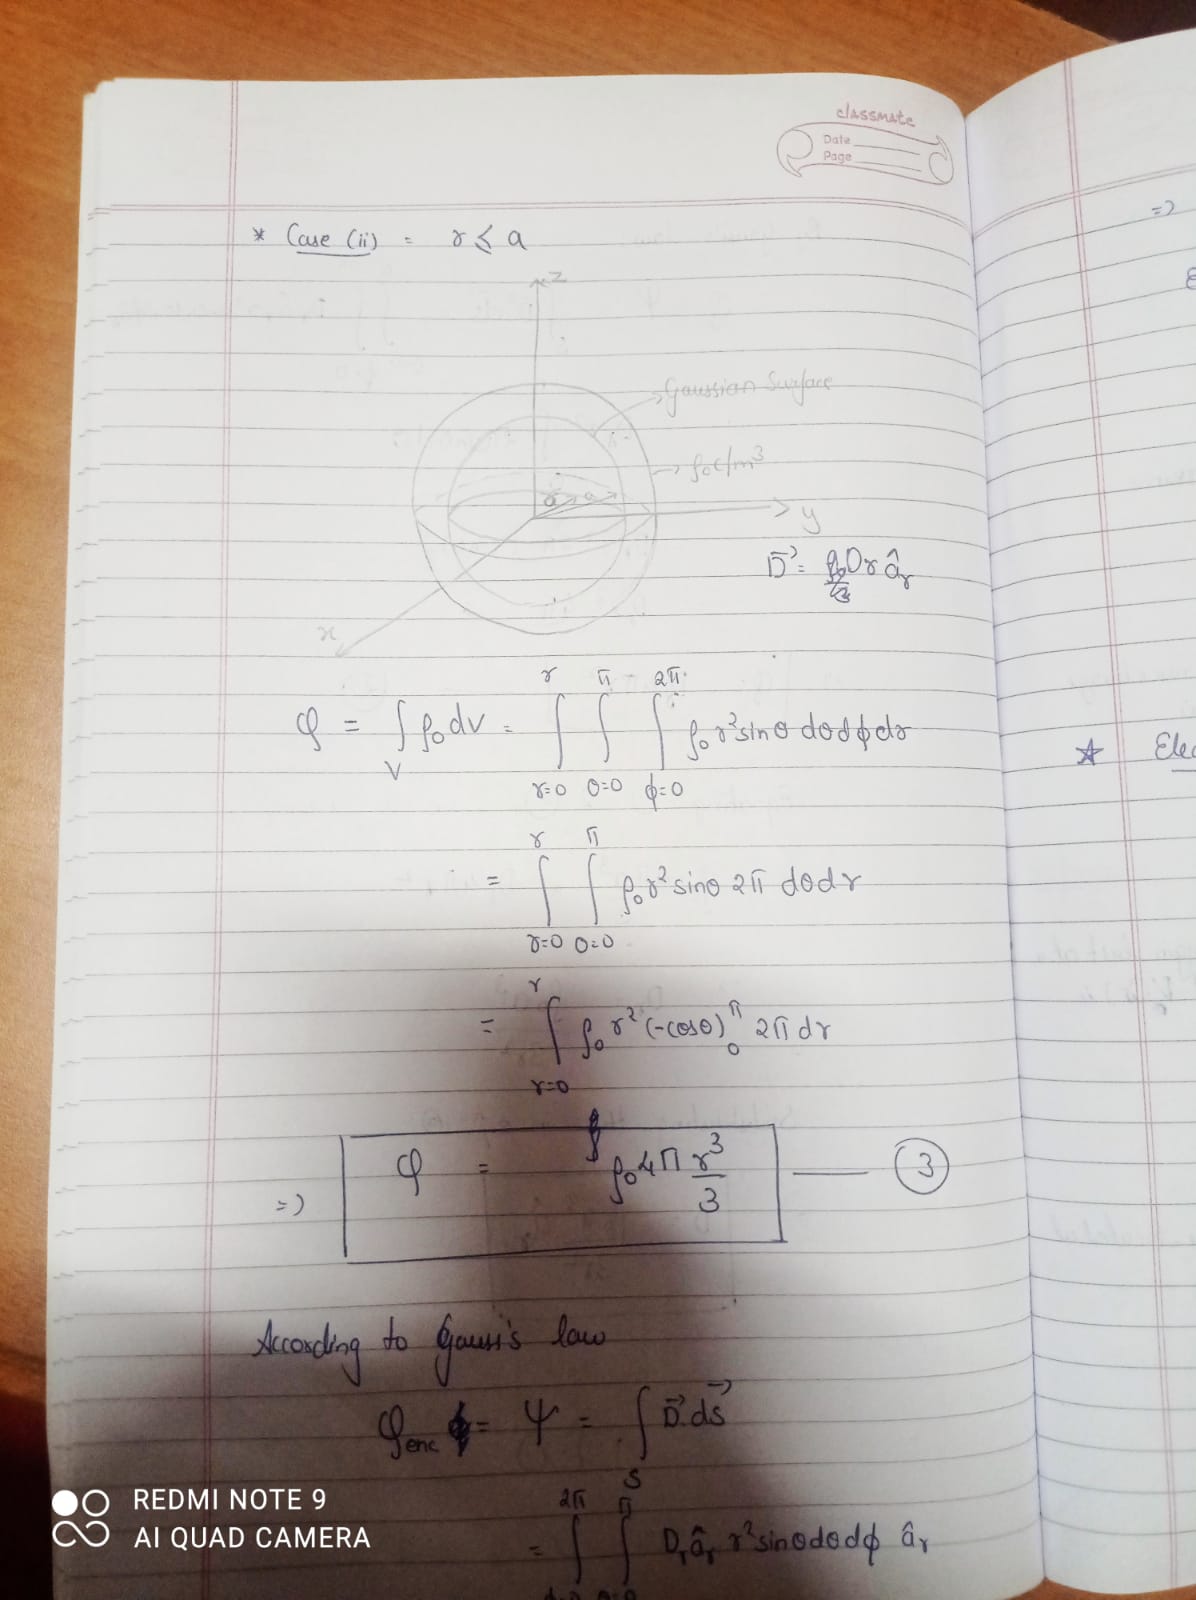 classmate
Date
Page
* Case (ii) = r ≤ a
z
Gaussian Surface
ρ₀ C/m³
r a
y
D⃗ = Dr âr
x
Q = ∫V ρ₀ dv = ∫r=0^r ∫θ=0^π ∫ϕ=0^2π ρ₀ r² sinθ dθ dϕ dr
= ∫r=0^r ∫θ=0^π ρ₀ r² sinθ 2π dθ dr
= ∫r=0^r ρ₀ r² (-cosθ)₀^π 2π dr
=> Q = ρ₀ 4π r³/3 — 3
According to Gauss's law
Qenc = Ψ = ∫S D⃗. ds⃗
= ∫^2π ∫^π Dr âr r² sinθ dθ dϕ âr
=>
☆ Elec
REDMI NOTE 9
AI QUAD CAMERA